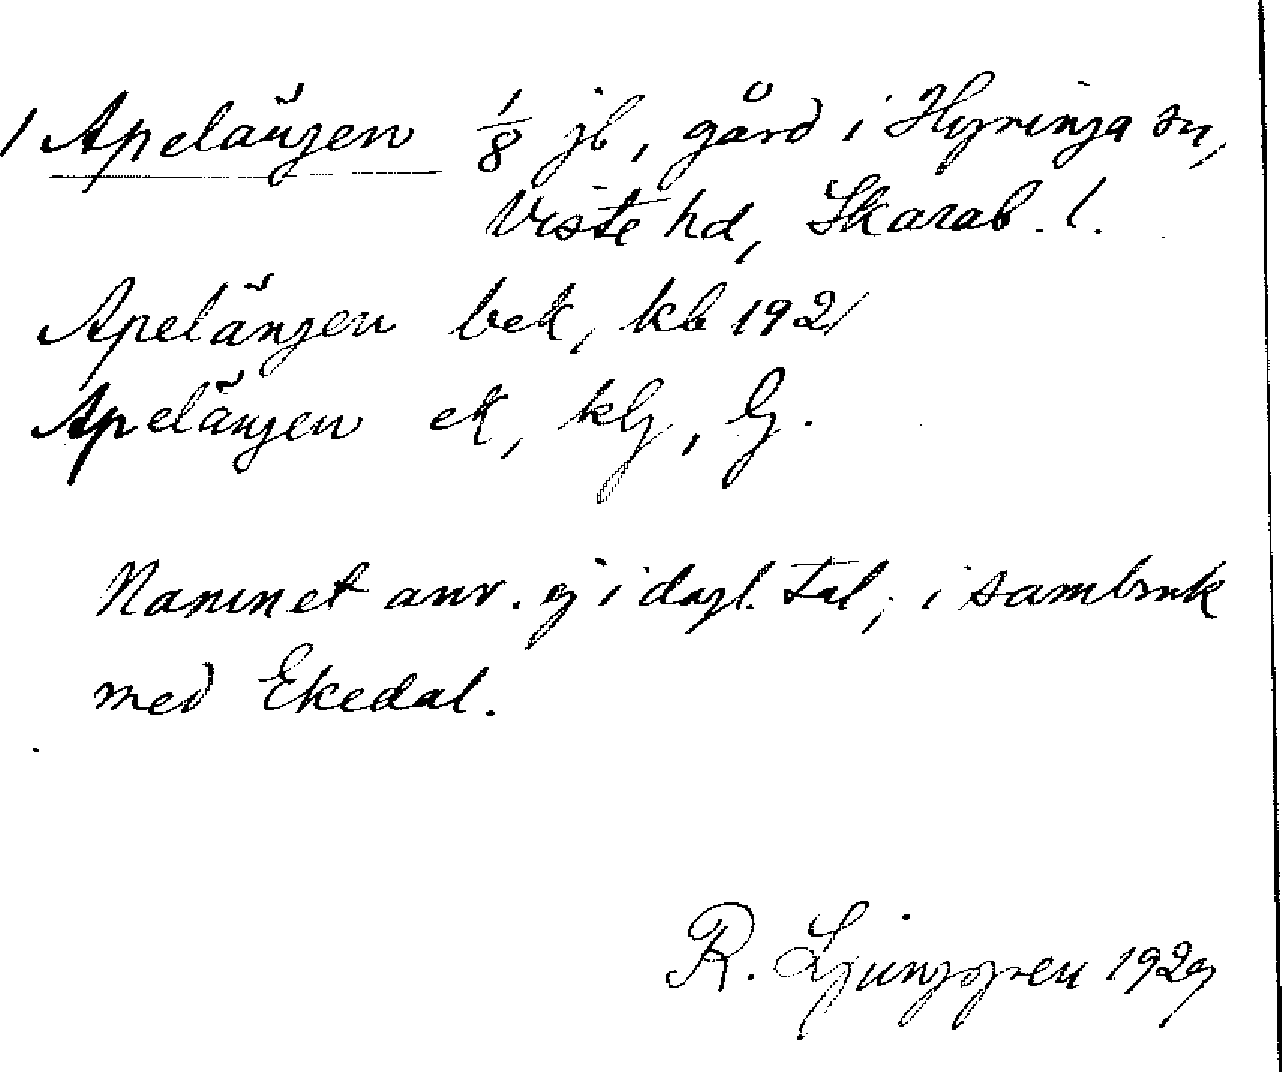 1 Apelängen 1/8 jb, gård i Hyringa sn,
Viste hd, Skarab. l.
Apelängen bek, kb 1921
Apelängen ek, klg, G.
Namnet anv. ej i dagl. tal, i sambruk
med Ekedal.
R. Ljunggren 1929